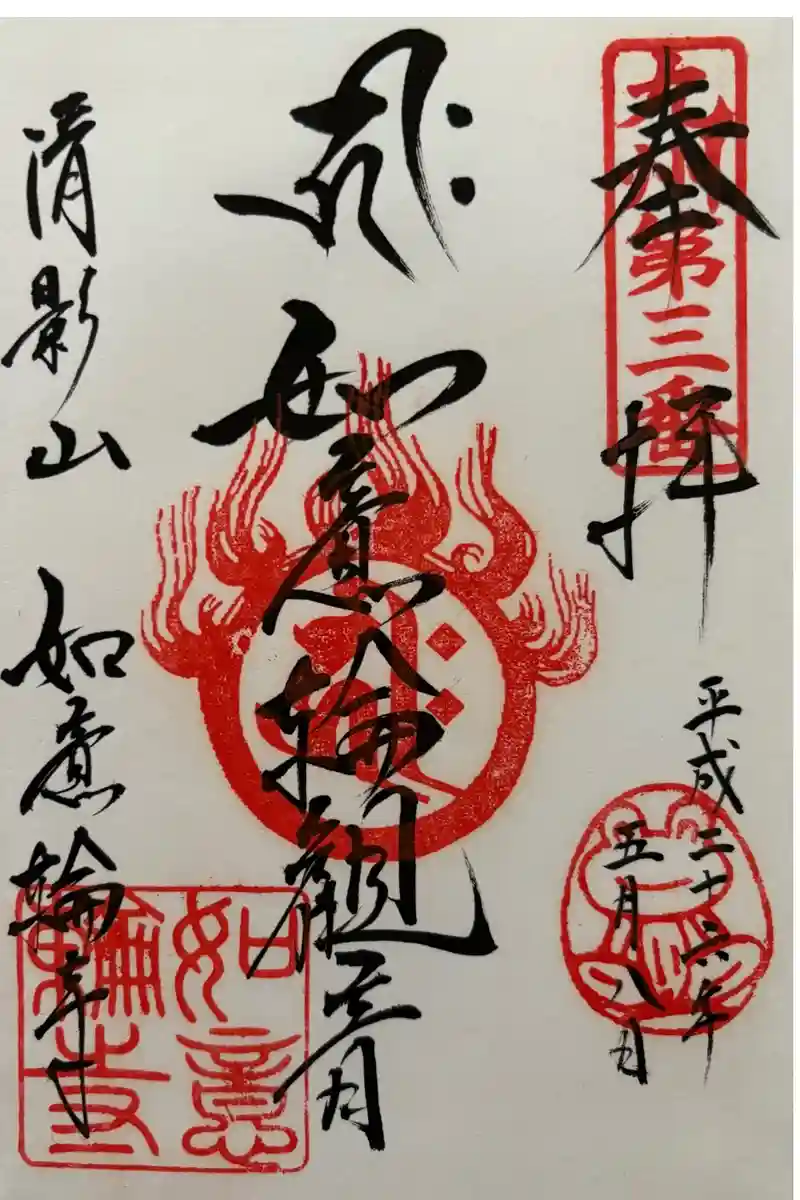 九州第三番
奉拝
平成二十六年
五月八日
如意輪觀世音
清影山 如意輪寺
如意
輪寺